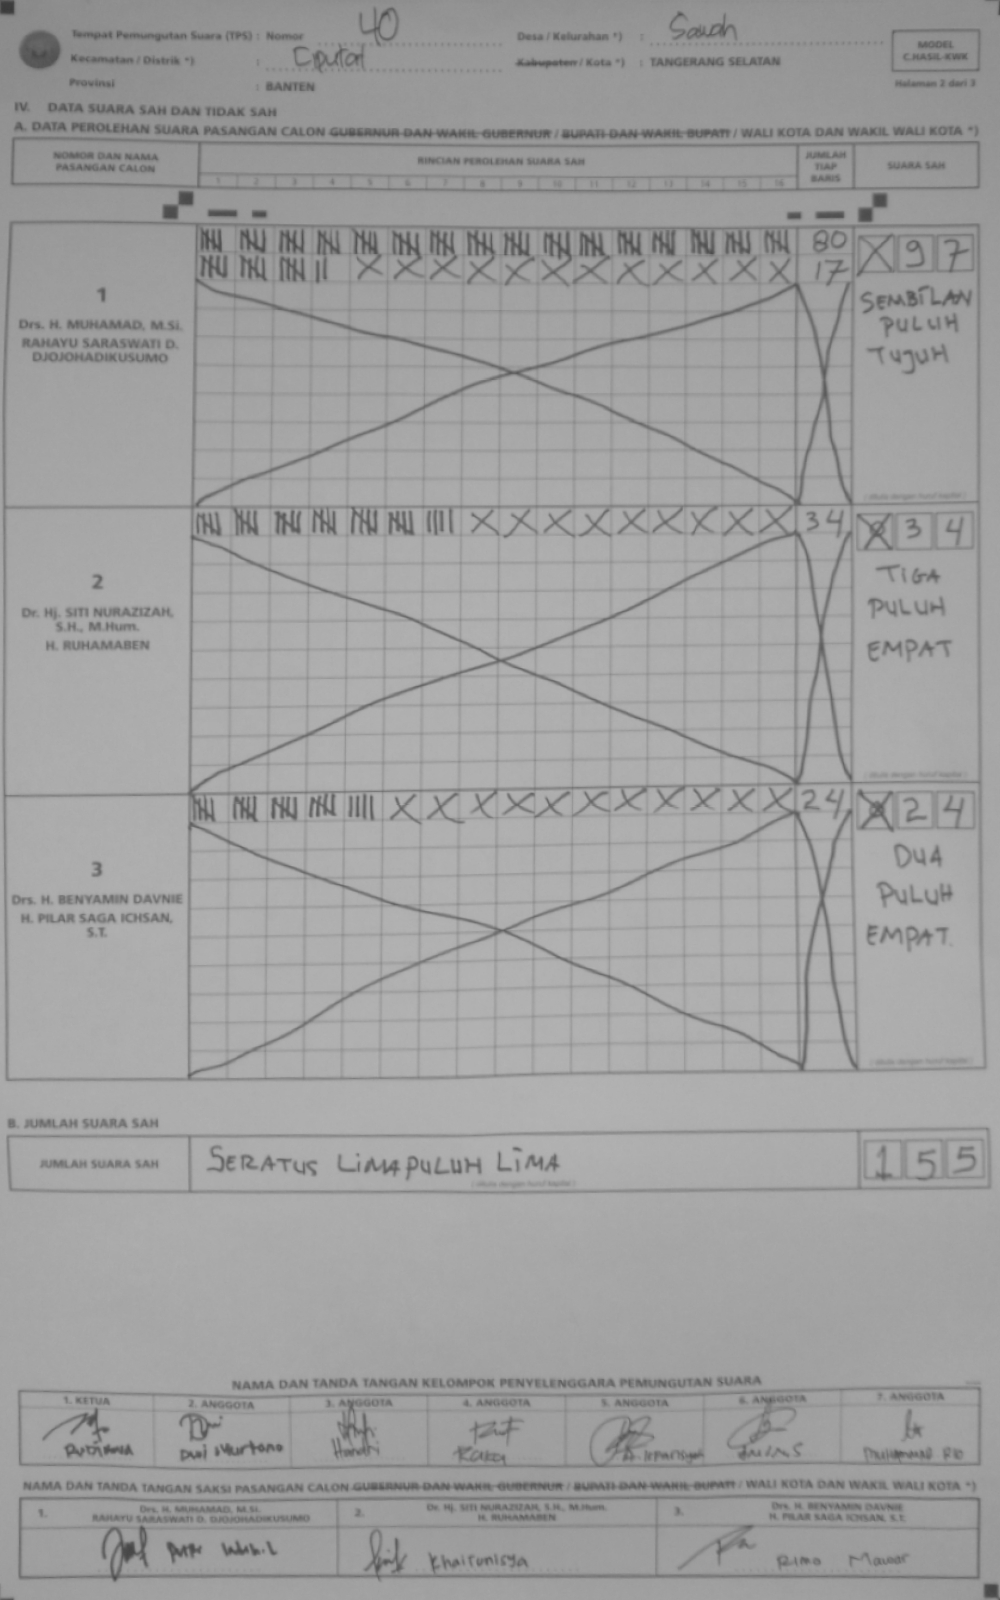 Tempat Pemungutan Suara (TPS) : Nomor 40 Desa / Kelurahan *) : Sawah
Kecamatan / Distrik *) : Ciputat Kabupaten / Kota *) : TANGERANG SELATAN
Provinsi : BANTEN
MODEL
C.HASIL-KWK
Halaman 2 dari 3
IV. DATA SUARA SAH DAN TIDAK SAH
A. DATA PEROLEHAN SUARA PASANGAN CALON GUBERNUR DAN WAKIL GUBERNUR / BUPATI DAN WAKIL BUPATI / WALI KOTA DAN WAKIL WALI KOTA *)
NOMOR DAN NAMA PASANGAN CALON
RINCIAN PEROLEHAN SUARA SAH
JUMLAH TIAP BARIS
SUARA SAH
1 2 3 4 5 6 7 8 9 10 11 12 13 14 15 16
1
Drs. H. MUHAMAD, M.Si.
RAHAYU SARASWATI D.
DJOJOHADIKUSUMO
80
17
X 9 7
SEMBILAN
PULUH
TUJUH
(ditulis dengan huruf kapital)
2
Dr. Hj. SITI NURAZIZAH,
S.H., M.Hum.
H. RUHAMABEN
34
X 3 4
TIGA
PULUH
EMPAT
(ditulis dengan huruf kapital)
3
Drs. H. BENYAMIN DAVNIE
H. PILAR SAGA ICHSAN,
S.T.
24
X 2 4
DUA
PULUH
EMPAT.
(ditulis dengan huruf kapital)
B. JUMLAH SUARA SAH
JUMLAH SUARA SAH SERATUS LIMAPULUH LIMA 155
(ditulis dengan huruf kapital)
NAMA DAN TANDA TANGAN KELOMPOK PENYELENGGARA PEMUNGUTAN SUARA
1. KETUA 2. ANGGOTA 3. ANGGOTA 4. ANGGOTA 5. ANGGOTA 6. ANGGOTA 7. ANGGOTA
Handri
NAMA DAN TANDA TANGAN SAKSI PASANGAN CALON GUBERNUR DAN WAKIL GUBERNUR / BUPATI DAN WAKIL BUPATI / WALI KOTA DAN WAKIL WALI KOTA *)
1. Drs. H. MUHAMAD, M.Si.
RAHAYU SARASWATI D. DJOJOHADIKUSUMO
2. Dr. Hj. SITI NURAZIZAH, S.H., M.Hum.
H. RUHAMABEN
Khairunisya
3. Drs. H. BENYAMIN DAVNIE
H. PILAR SAGA ICHSAN, S.T.
Rimo Mawar